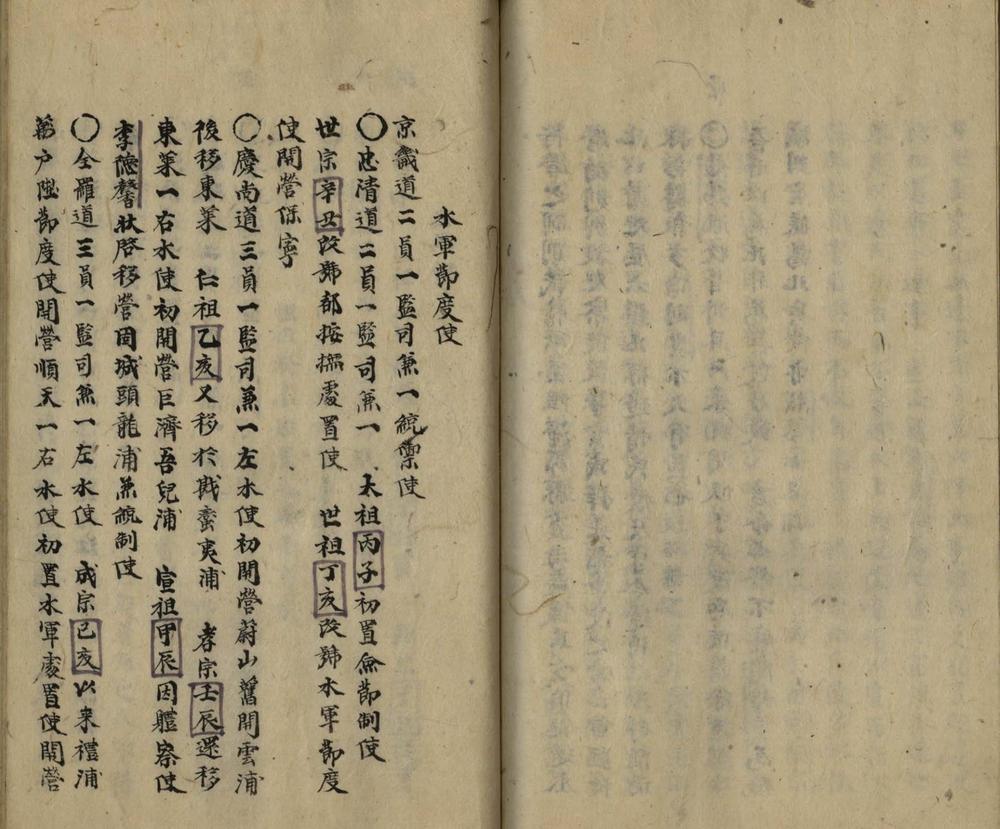 水軍節度使
京畿道二員一監司兼一統禦使
〇忠清道二員一監司兼一 太祖丙子初置僉節制使
世宗辛丑改號都按撫處置使 世祖丁亥改號水軍節度
使開營保寧
〇慶尚道三員一監司兼一左水使初開營蔚山舊開雲浦
後移東萊 仁祖乙亥又移於戡蠻夷浦 孝宗壬辰還移
東萊一右水使初開營巨濟吾兒浦 宣祖甲辰因體察使
李德馨狀啓移營固城頭龍浦兼統制使
〇全羅道三員一監司兼一左水使 成宗己亥以来禮浦
萬户陞節度使開營順天一右水使初置水軍處置使開營